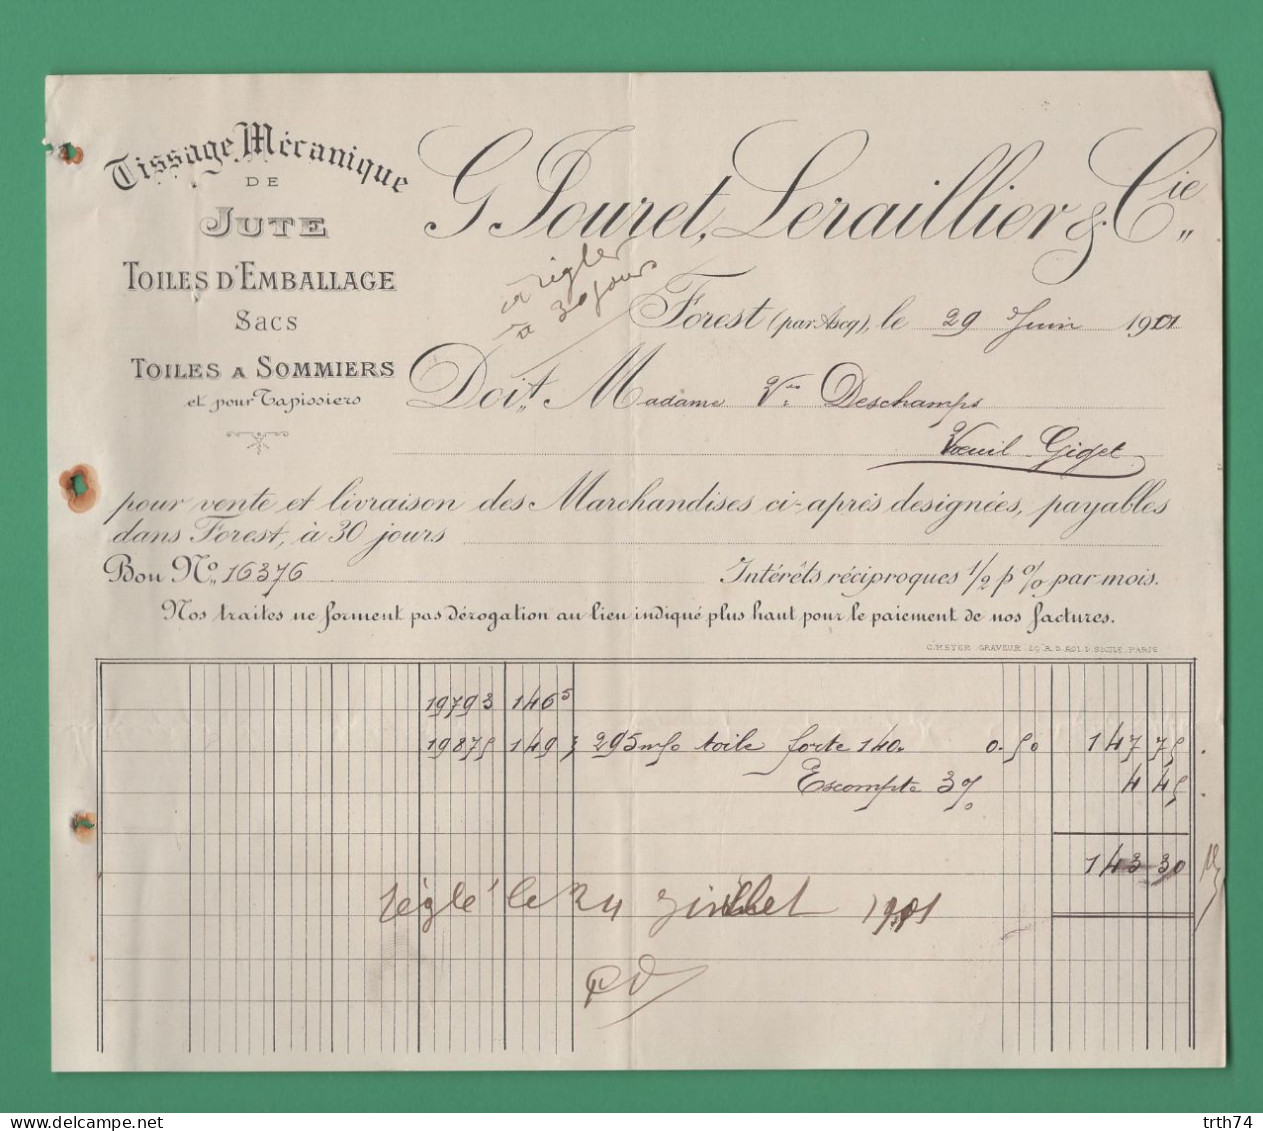 Tissage Mécanique
DE
JUTE
TOILES D'EMBALLAGE
SACS
TOILES A SOMMIERS
et pour Tapissiers
G. Jouret, Leraillier & Cie
à régler
à 30 jours
Forest (par Ascq), le 29 Juin 1901
Doit Madame Vve Deschamps
Vœuil Giget
pour vente et livraison des Marchandises ci-après designées, payables
dans Forest, à 30 jours
Bon No. 16376 Intérêts réciproques 1/2 p % par mois.
Nos traites ne forment pas dérogation au lieu indiqué plus haut pour le paiement de nos factures.
C. MEYER GRAVEUR. 29. R. D. ROI. D. SICILE. PARIS
19793 146 5
19875 149 295 m/s toile forte 140. 0.50 147 75
Escompte 3% 4 45
143 30
réglé le 24 juillet 1901
PD
Delcampe.net
trth74